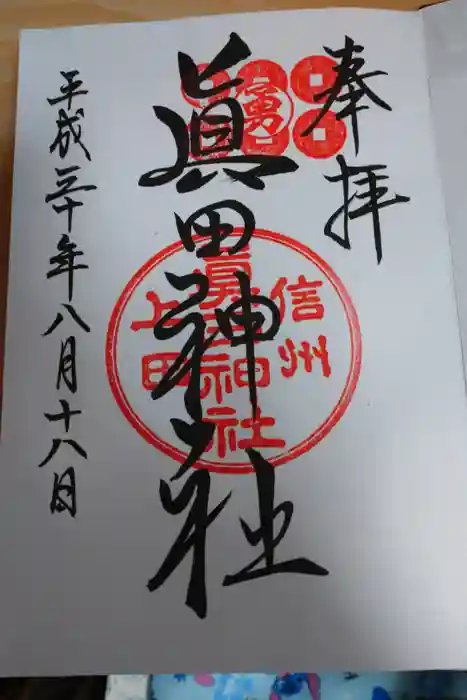 奉拝
勇
眞田神社
信州
眞田神社
上田
平成三十年八月十八日